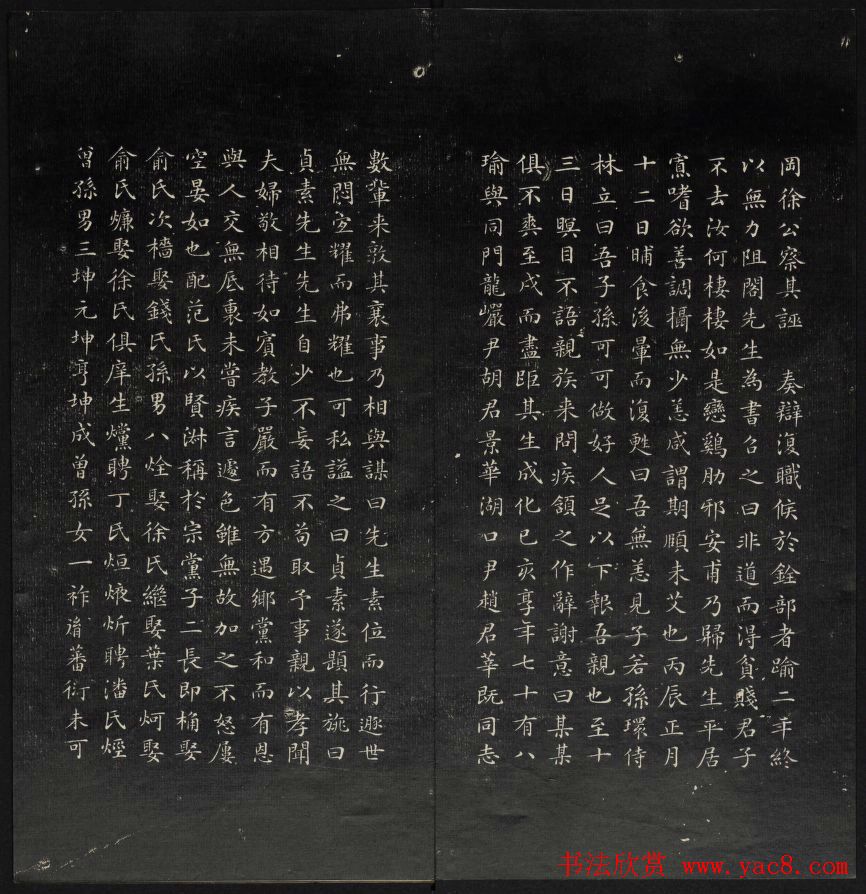 岡徐公察其誣　奏辯復職候於銓部者踰二年終
以無力阻閣先生為書召之曰非道而得貧賤君子
不去汝何棲棲如是戀鷄肋邪安甫乃歸先生平居
寡嗜欲善調攝無少恙咸謂期頤未艾也丙辰正月
十二日晡食後暈而復甦曰吾無恙見子若孫環侍
林立曰吾子孫可可做好人足以下報吾親也至十
三日瞑目不語親族来問疾頷之作辭謝意曰某某
俱不爽至戌而盡距其生成化己亥享年七十有八
瑜與同門龍巖尹胡君景華湖口尹趙君莘既同志
數輩来敦其襄事乃相與謀曰先生素位而行遯世
無悶寔耀而弗耀也可私謚之曰貞素遂題其旐曰
貞素先生先生自少不妄語不苟取予事親以孝聞
夫婦敬相待如賓教子嚴而有方遇鄉黨和而有恩
與人交無底裏未嘗疾言遽色雖無故加之不怒屢
空晏如也配范氏以賢淋稱於宗黨子二長即桷娶
俞氏次檣娶錢氏孫男八烇娶徐氏繼娶葉氏炣娶
俞氏熑娶徐氏俱庠生爣聘丁氏烜焲炘聘潘氏烴
曾孫男三坤元坤亨坤成曾孫女一祚胤蕃衍未可
书法欣赏 www.yac8.com